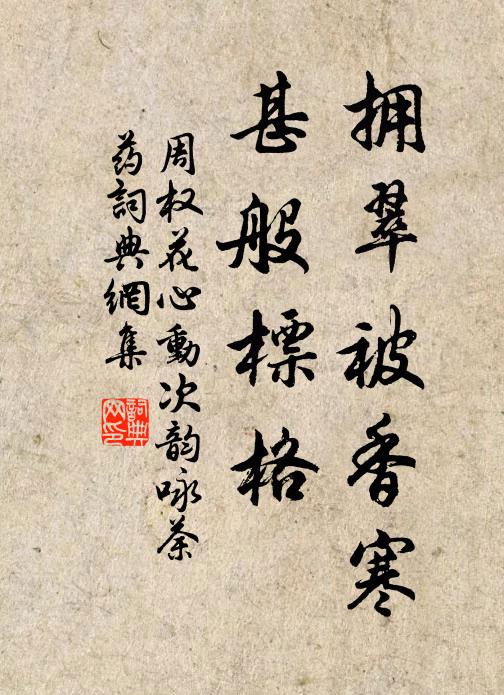 拥翠被香寒
甚般標格
周权花心動次韵咏茶
药詞典網集
詞典
网印